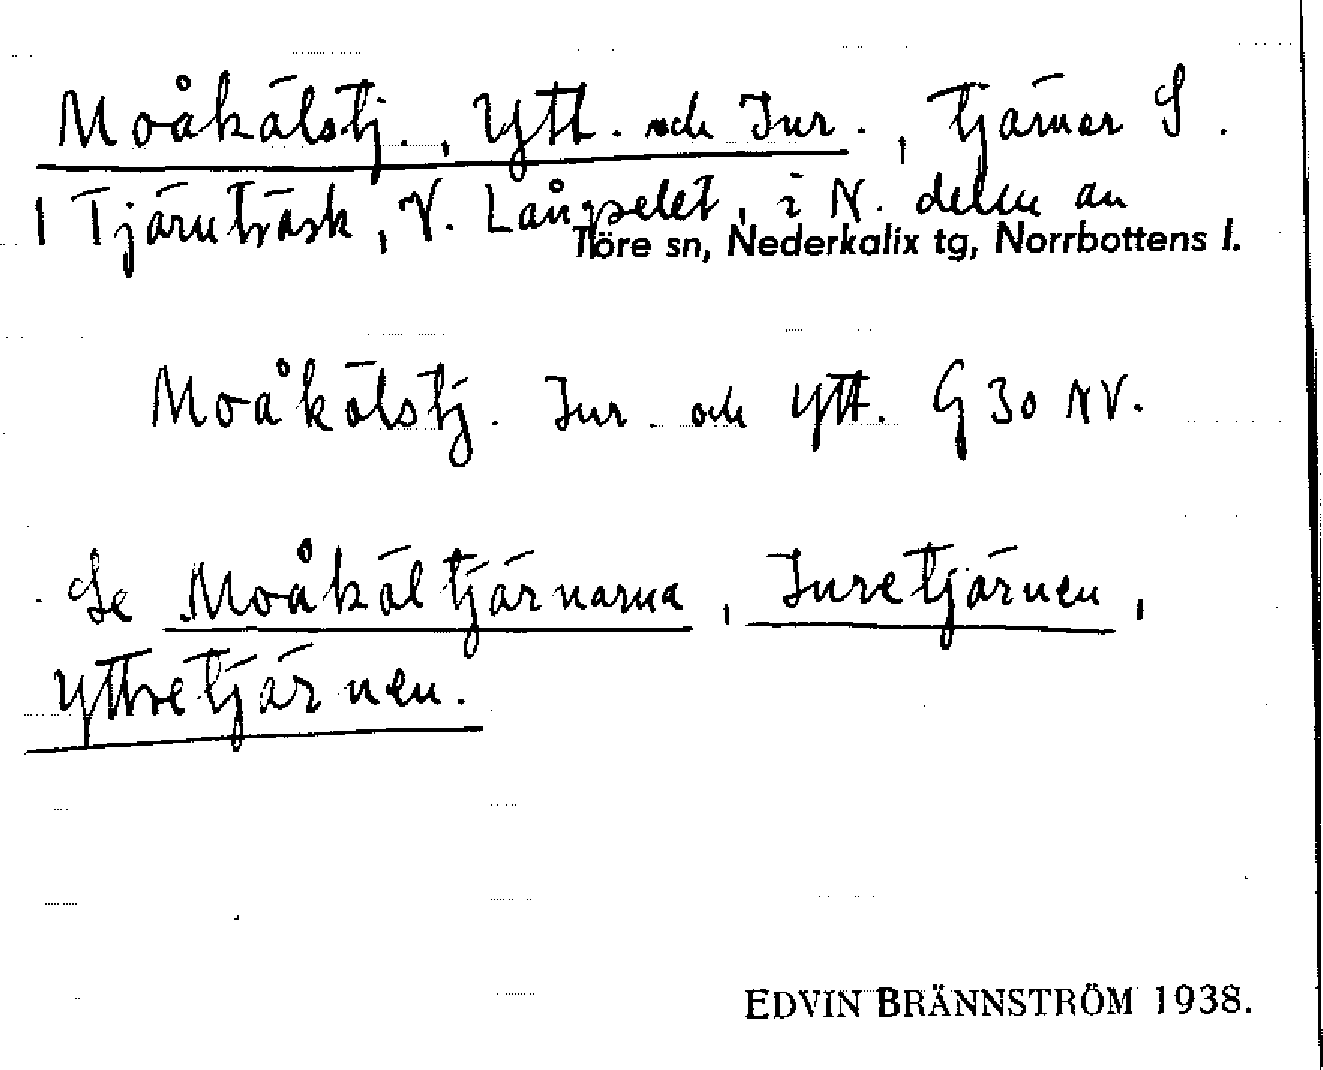 Moåkälstj., Ytt. och Inr., tjärner S.
I Tjärnträsk, V. Långselet, i N. delen av
Töre sn, Nederkalix tg, Norrbottens l.
Moåkälstj. Inr. och Ytt. G 30 NV.
Se Moåkältjärnarna, Inretjärnen,
Yttretjärnen.
EDVIN BRÄNNSTRÖM 1938.